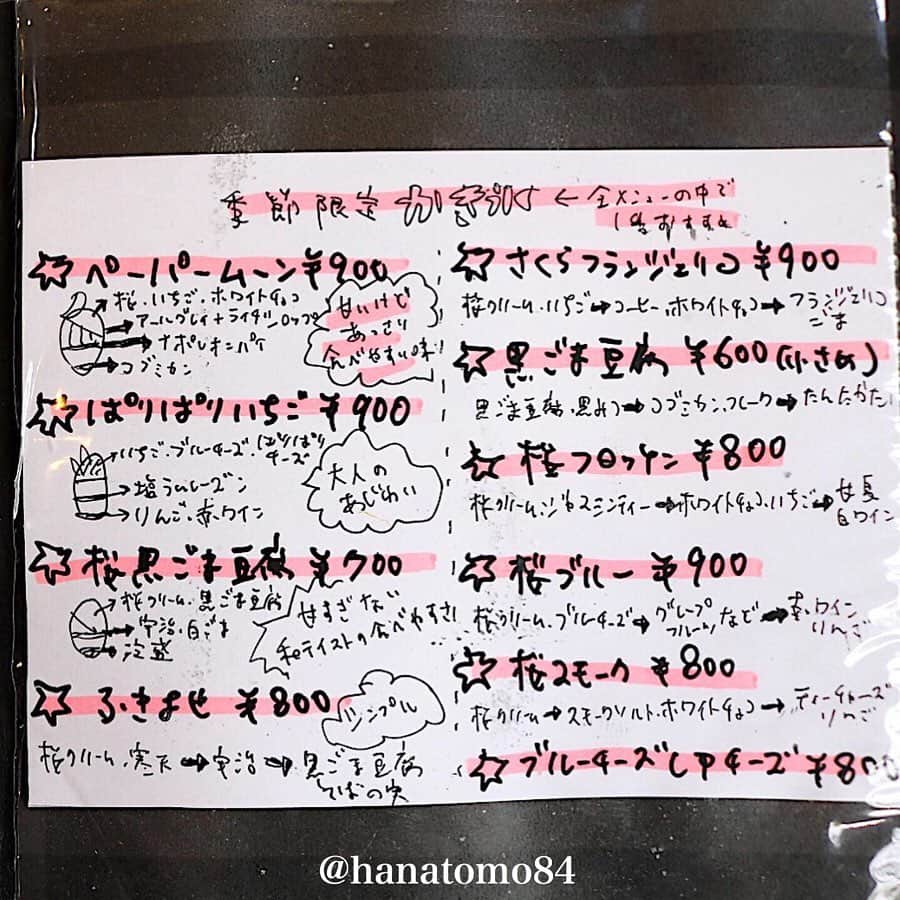 季節限定 かき氷 ← 全メニューの中で
1番おすすめ
☆ ペーパームーン ¥900
桜・いちご・ホワイトチョコ
アールグレイ+ライチシロップ
ナポレオンパイ
コブミカン
甘いけど
あっさり
食べやすい味
☆ ぱりぱりいちご ¥900
いちご・ブルーチーズ・ぱりぱり
チーズ
塩ラムレーズン
りんご・赤ワイン
大人の
あじわい
☆ 桜黒ごま豆腐 ¥700
桜クリーム・黒ごま豆腐
宇治・白ごま
甘すぎない
和テイストの食べやすさ!
☆ ふきよせ ¥800
シンプル
桜クリーム・寒天→宇治→黒ごま豆腐
そばの実
☆ さくらフランジェリコ ¥900
桜クリーム・いちご→コーヒー・ホワイトチョコ→フランジェリコ
ごま
☆ 黒ごま豆腐 ¥600(小さめ)
黒ごま豆腐・黒みつ→コブミカン・フレーク→
☆ 桜フロッケン ¥800
桜クリーム・ジャスミンティー→ホワイトチョコ・いちご→
白ワイン
☆ 桜ブルー ¥900
桜クリーム・ブルーチーズ→グレープ
フルーツ など→赤ワイン
りんご
☆ 桜スモーク ¥800
桜クリーム→スモークソルト・ホワイトチョコ→ティーチャーズ
りんご
☆ ブルーチーズレアチーズ ¥800
@hanatomo84